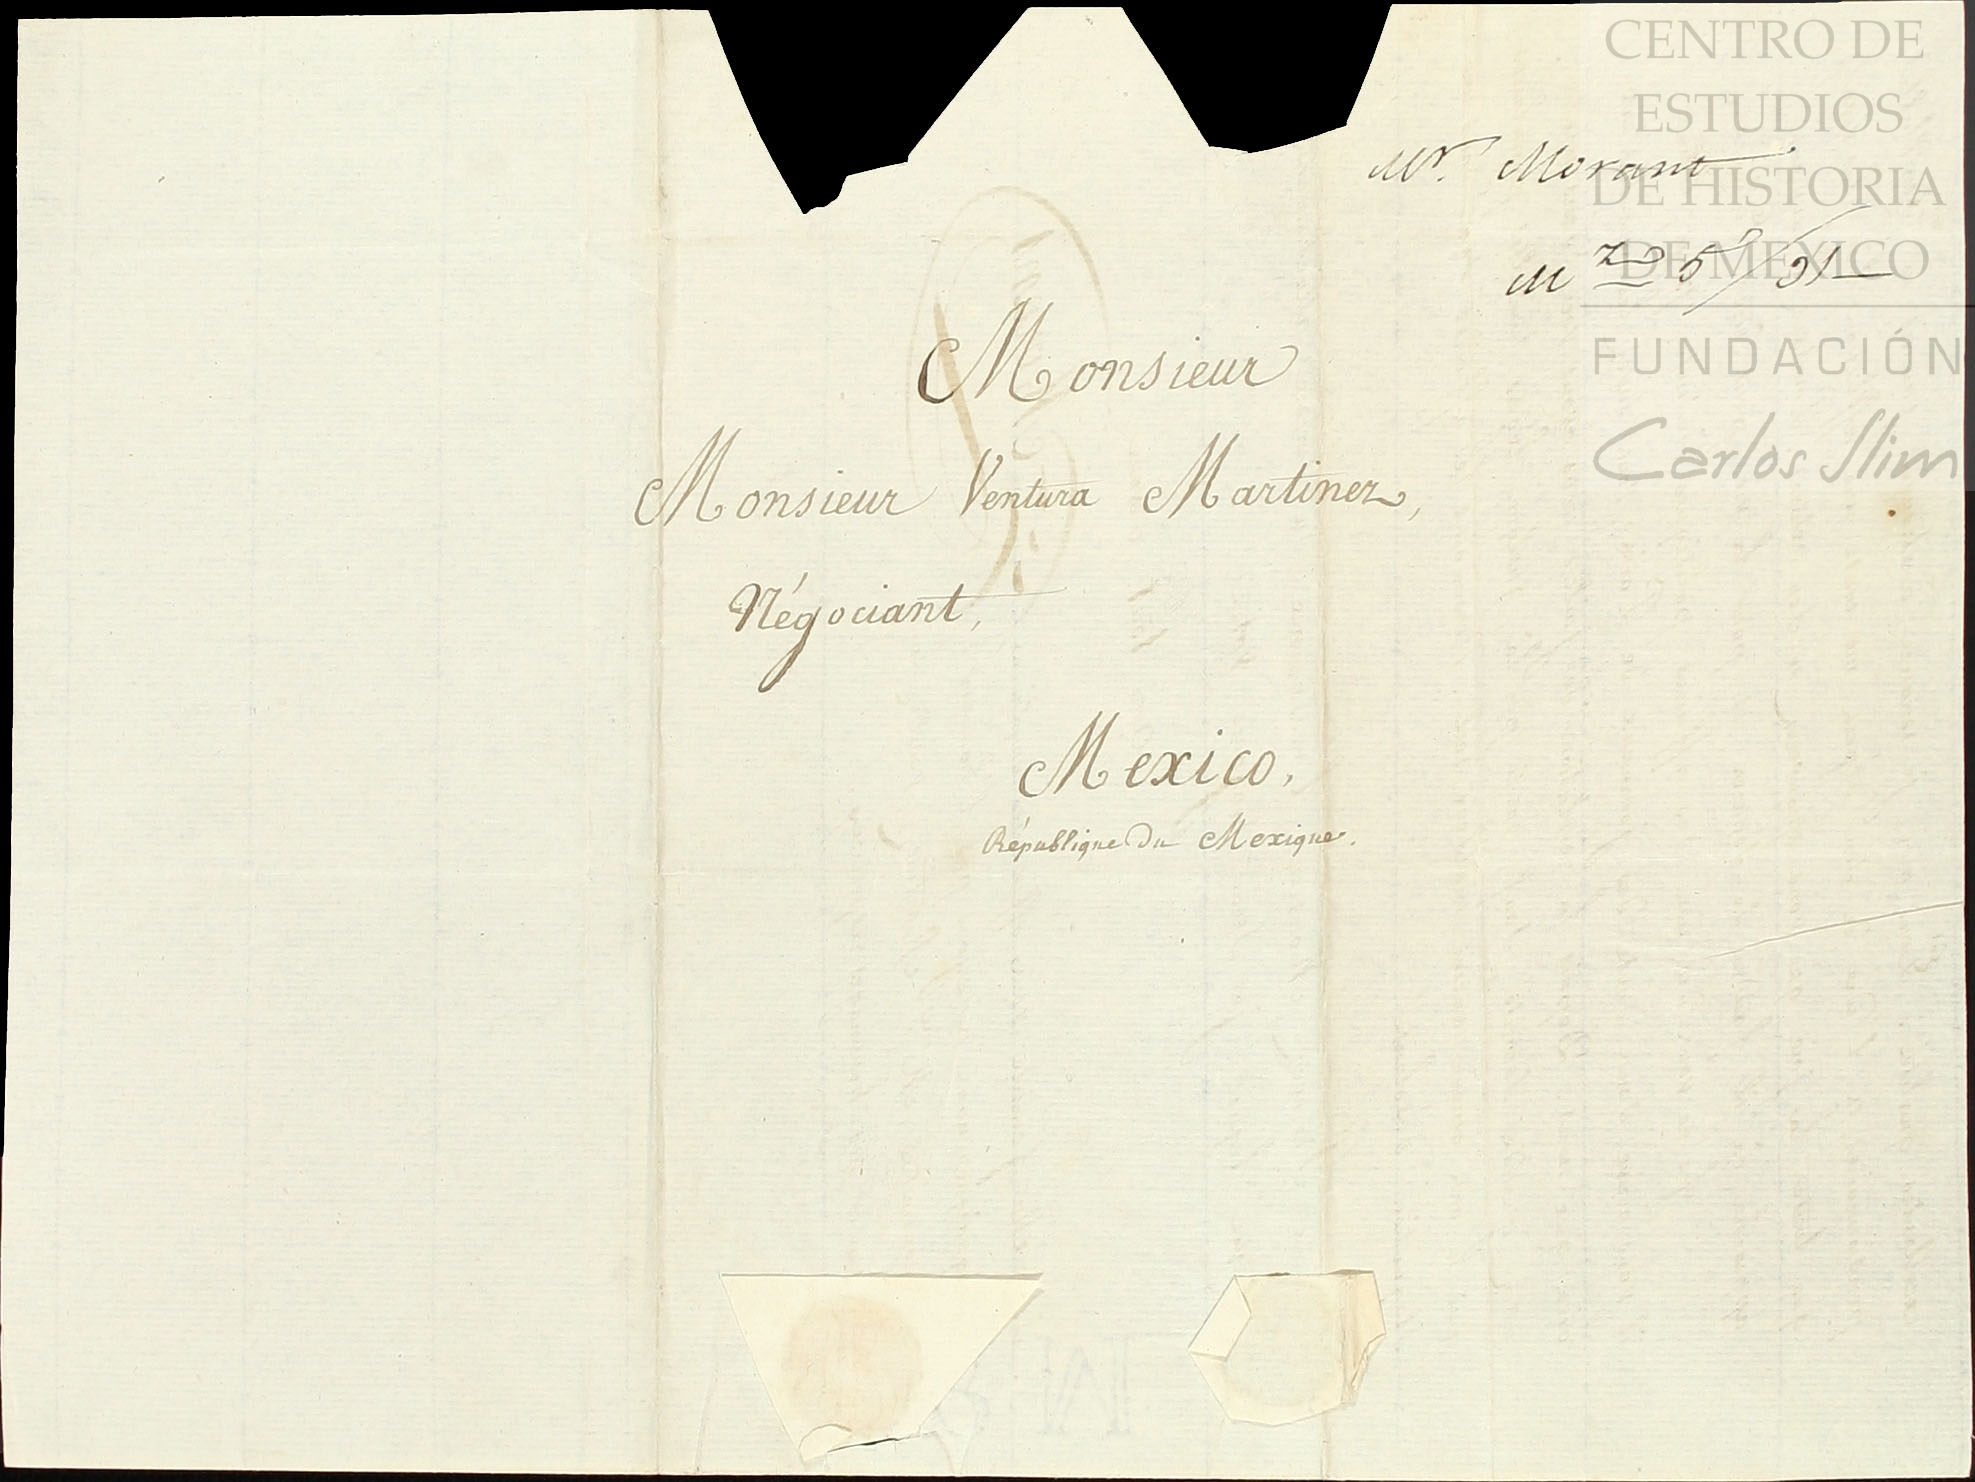 CENTRO DE
ESTUDIOS
DE HISTORIA
DE MEXICO
FUNDACIÓN
Carlos Slim
Mr. Morant
Mzo 5/31
Monsieur
Monsieur Ventura Martinez,
Négociant,
Mexico,
République du Mexique.